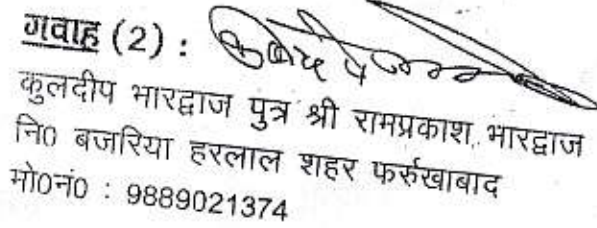 गवाह (2) :
कुलदीप भारद्वाज पुत्र श्री रामप्रकाश भारद्वाज
नि0 बजरिया हरलाल शहर फर्रुखाबाद
मो0नं0 : 9889021374